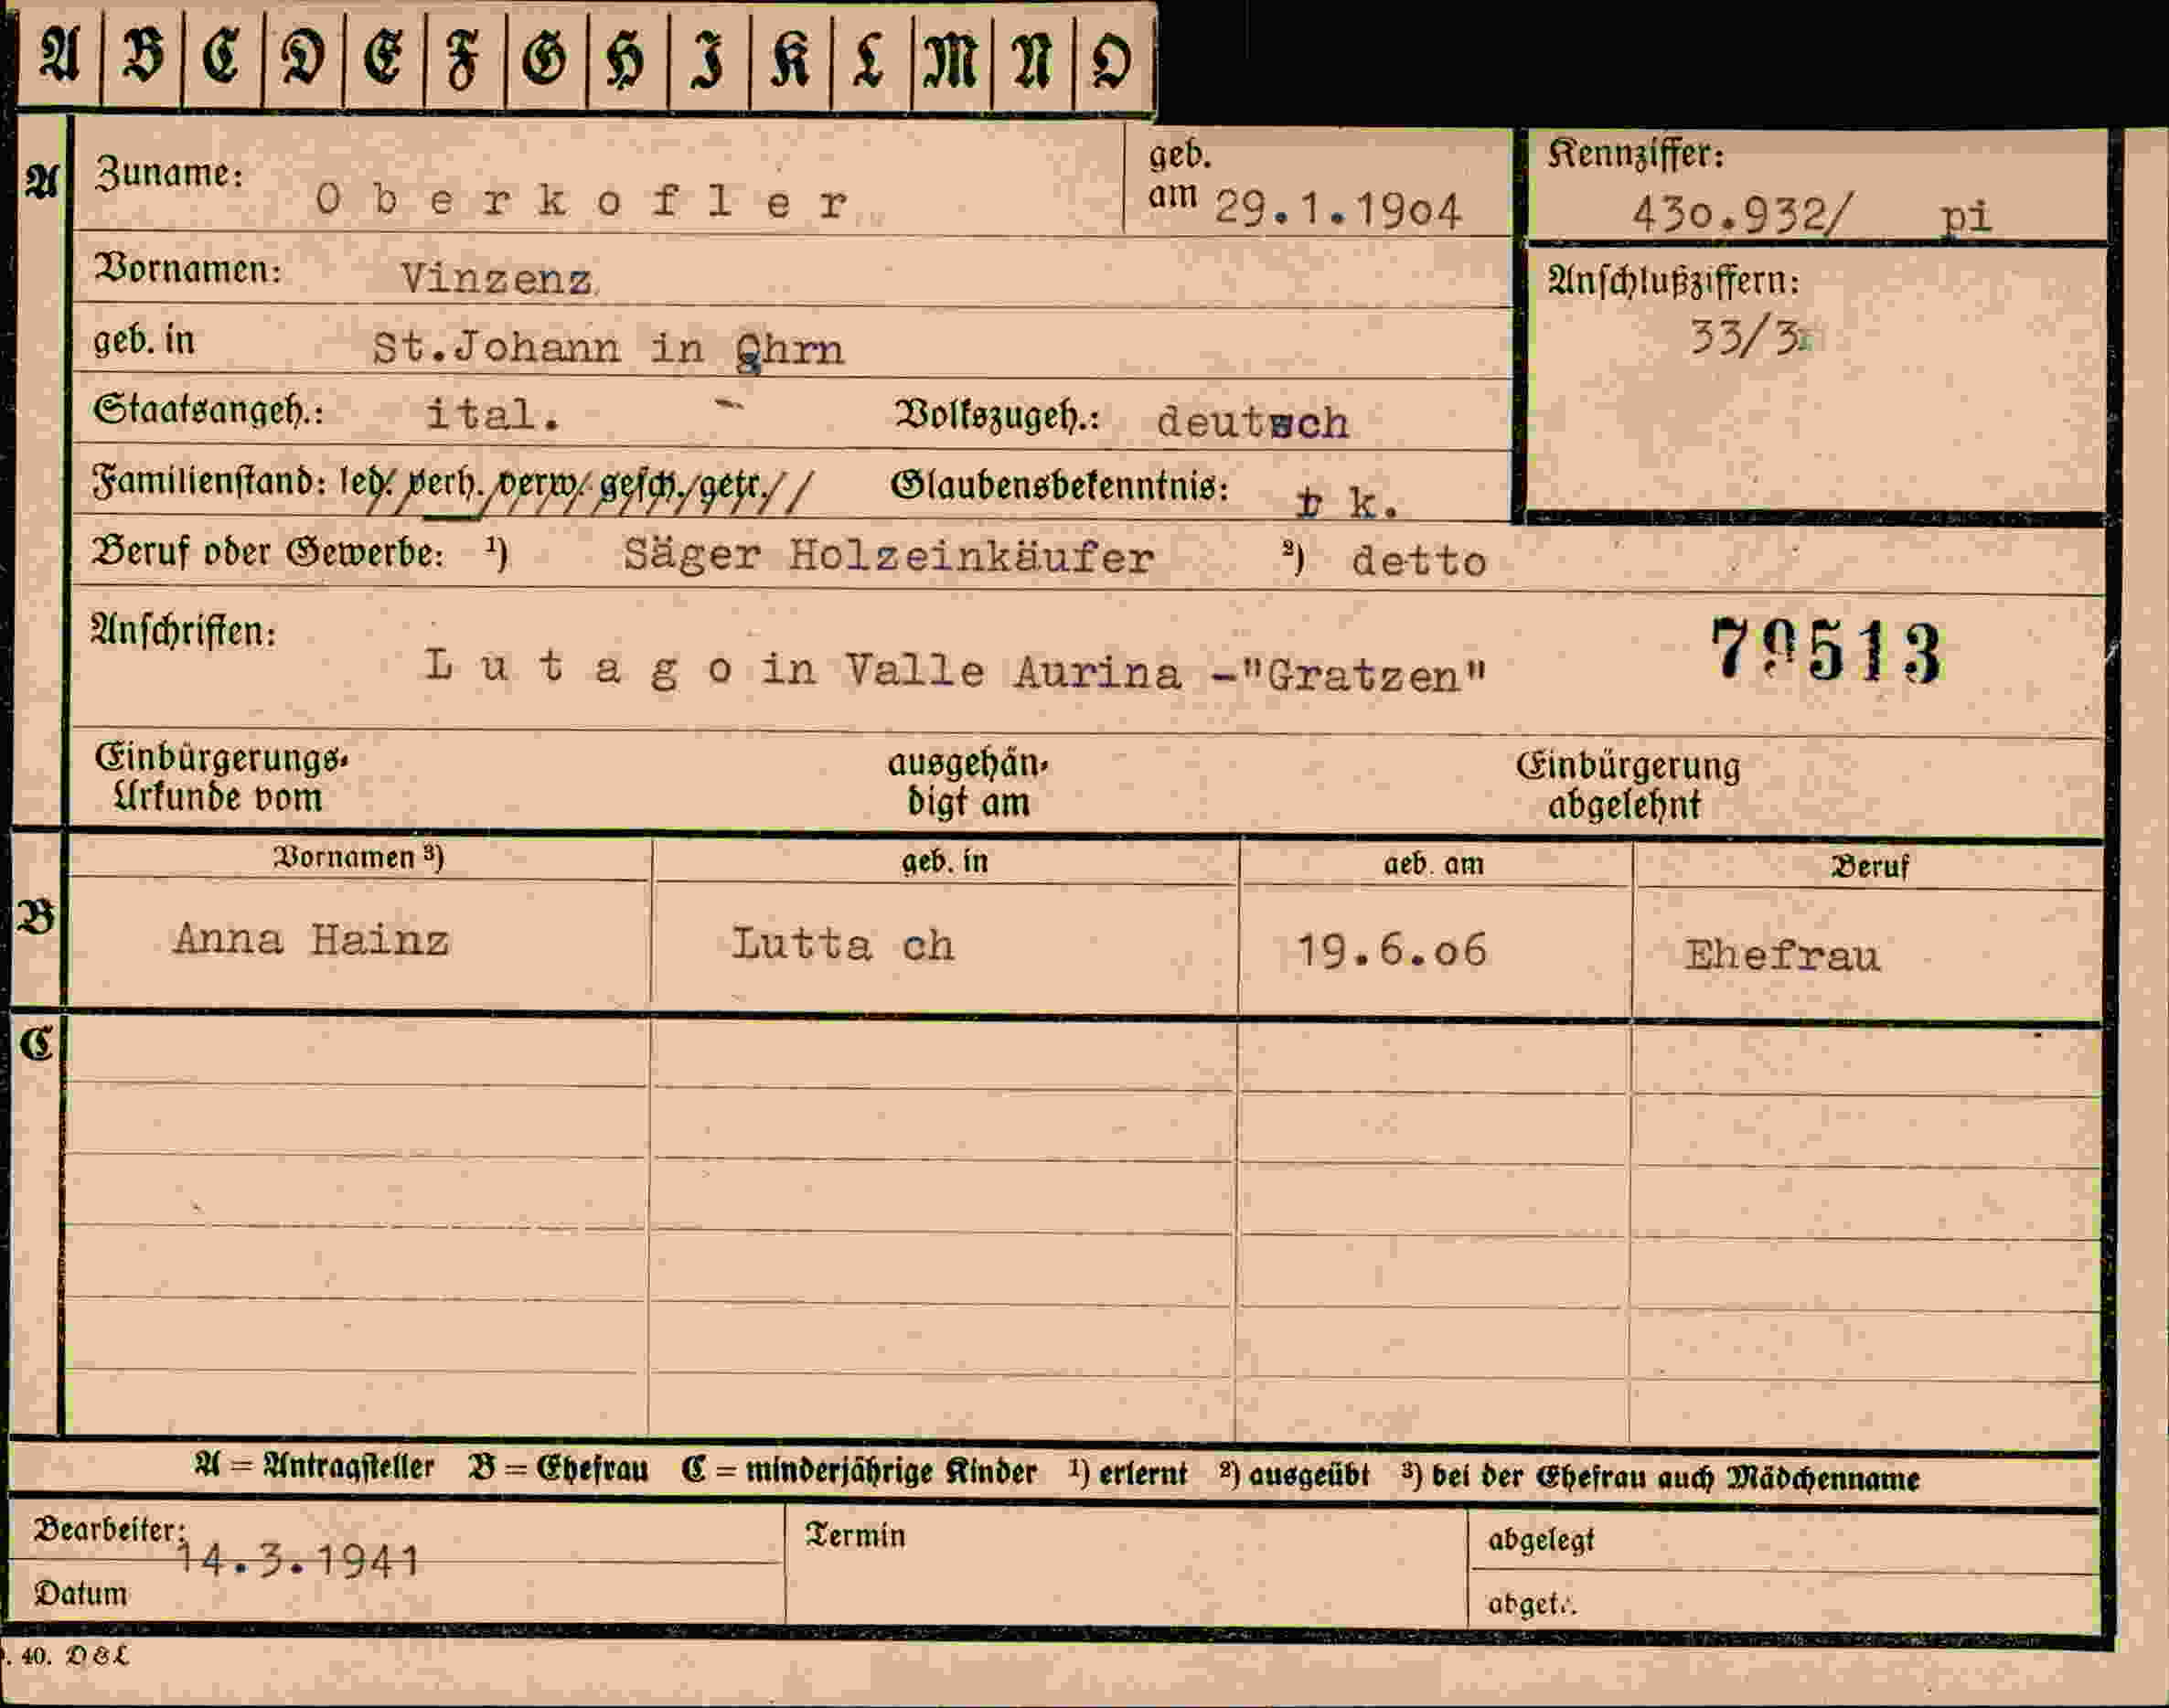 A B C D E F G H I K L M N O
A Zuname: Oberkofler geb. am 29.1.1904 Kennziffer: 430.932/ pi
Vornamen: Vinzenz Anschlußziffern:
33/3
geb. in St.Johann in Ahrn
Staatsangeh.: ital. - Volkszugeh.: deutsch
Familienstand: led. verh. verw. gesch. getr. Glaubensbekenntnis: k.
Beruf oder Gewerbe: ¹) Säger Holzeinkäufer ²) detto
Anschriften: 79513
Lutago in Valle Aurina -"Gratzen"
Einbürgerungs- ausgehän- Einbürgerung
Urkunde vom digt am abgelehnt
Vornamen ³) geb. in geb. am Beruf
B Anna Hainz Lutta ch 19.6.06 Ehefrau
C
A = Antragsteller B = Ehefrau C = minderjährige Kinder ¹) erlernt ²) ausgeübt ³) bei der Ehefrau auch Mädchenname
Bearbeiter: Termin abgelegt
14.3.1941
Datum
40. D&L